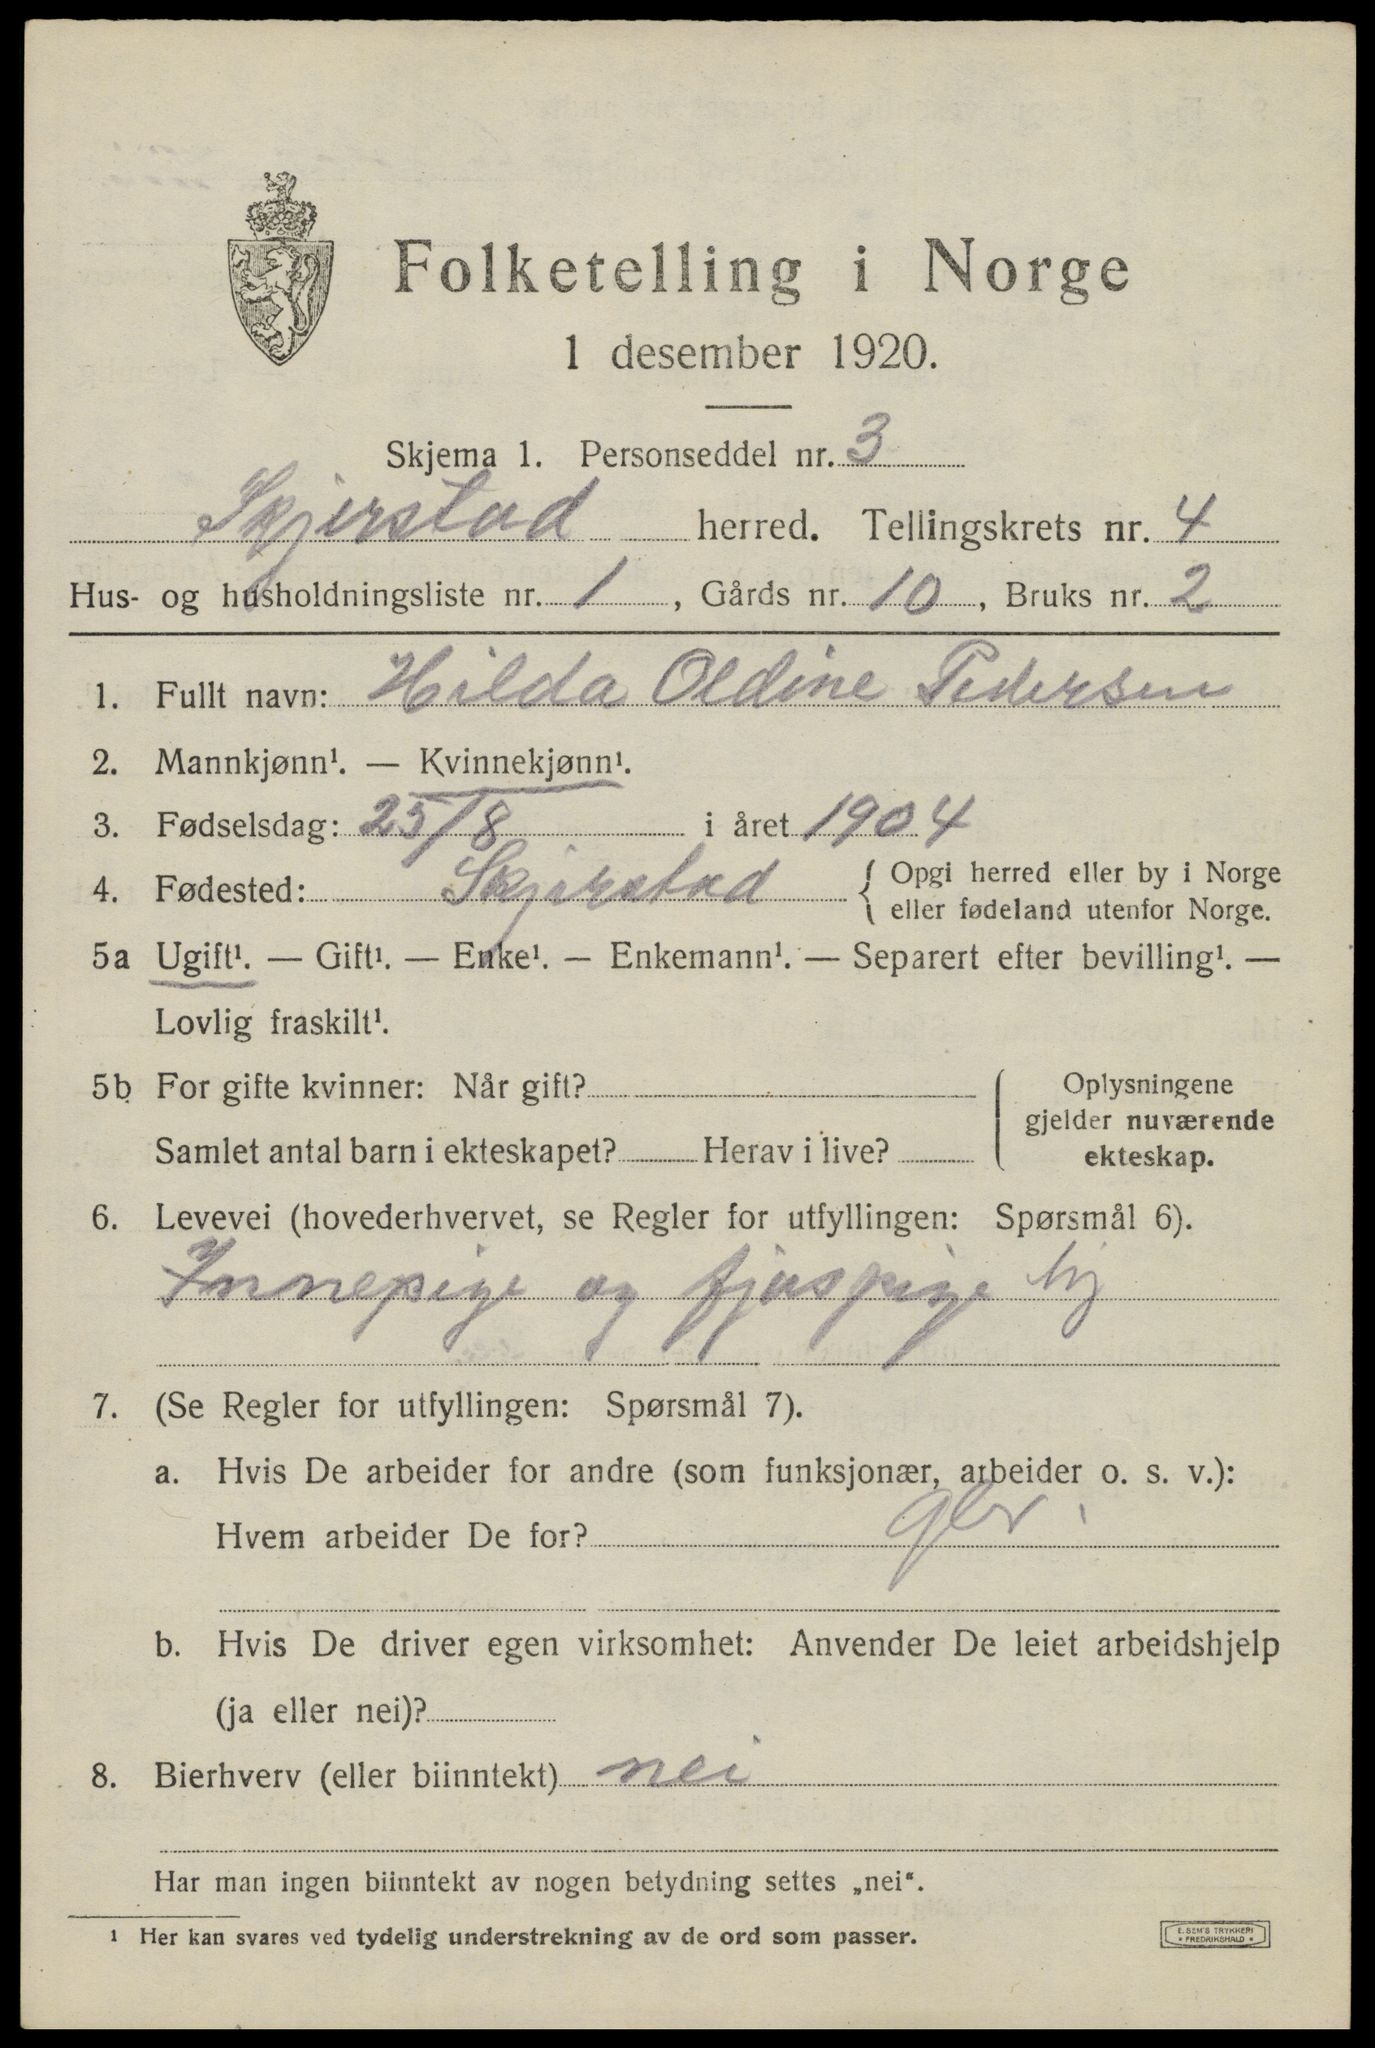 Folketelling i Norge
1 desember 1920.
Skjema 1. Personseddel nr. 3
Skjerstad herred. Tellingskrets nr. 4
Hus- og husholdningsliste nr. 1, Gårds nr. 10, Bruks nr. 2
1. Fullt navn: Hilda Oldine Pedersen
2. Mannkjønn¹. — Kvinnekjønn¹.
3. Fødselsdag: 25/8 i året 1904
4. Fødested: Skjerstad { Opgi herred eller by i Norge
eller fødeland utenfor Norge.
5a Ugift¹. — Gift¹. — Enke¹. — Enkemann¹. — Separert efter bevilling¹. —
Lovlig fraskilt¹.
5b For gifte kvinner: Når gift?
Samlet antal barn i ekteskapet? Herav i live?
Oplysningene
gjelder nuværende
ekteskap.
6. Levevei (hovederhvervet, se Regler for utfyllingen: Spørsmål 6).
Innepige og fjøspige
7. (Se Regler for utfyllingen: Spørsmål 7).
a. Hvis De arbeider for andre (som funksjonær, arbeider o. s. v.):
Hvem arbeider De for?
b. Hvis De driver egen virksomhet: Anvender De leiet arbeidshjelp
(ja eller nei)?
8. Bierhverv (eller biinntekt) nei
Har man ingen biinntekt av nogen betydning settes „nei“.
¹ Her kan svares ved tydelig understrekning av de ord som passer.
E. SEM'S TRYKKERI
* FREDRIKSHALD *